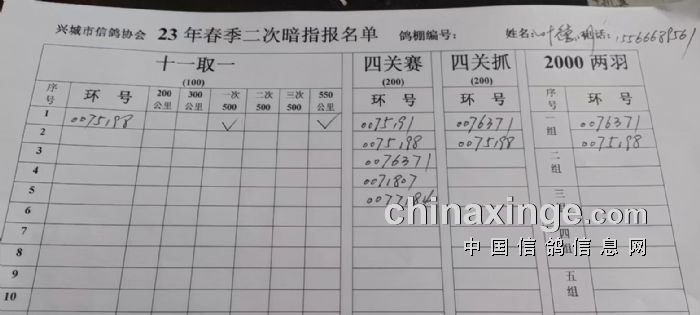 兴城市信鸽协会 23年春季二次暗指报名单 鸽棚编号: 姓名:叶 电话:
十一取一 四关赛 四关抓 2000两羽
(100) (200) (200)
序号 环号 200公里 300公里 一次500 二次500 三次500 550公里 环号 环号 序号 环号
1 0075198 ✓ ✓ 007591 0076371 一组 0076371
2 0075198 0075198 0075198
3 0076371 二组
4 0071807
5 三
6
7 四组
8
9 五组
10
chinaxinge.com
中国信鸽信息网